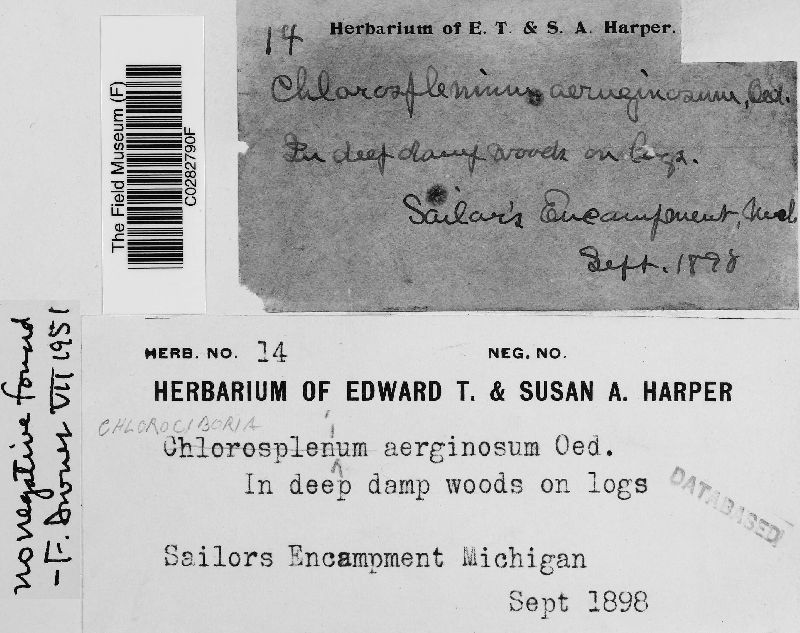 The Field Museum (F)
C0282790F
14
Herbarium of E. T. & S. A. Harper.
Chlorosplenium aeruginosum, Oed.
In deep damp woods on logs.
Sailor's Encampment, Mich
Sept. 1898
no negative found
VII 1951
HERB. NO. 14 NEG. NO.
HERBARIUM OF EDWARD T. & SUSAN A. HARPER
CHLOROCIBORIA
i
Chlorosplenum aerginosum Oed.
In deep damp woods on logs
DATABASED
Sailors Encampment Michigan
Sept 1898